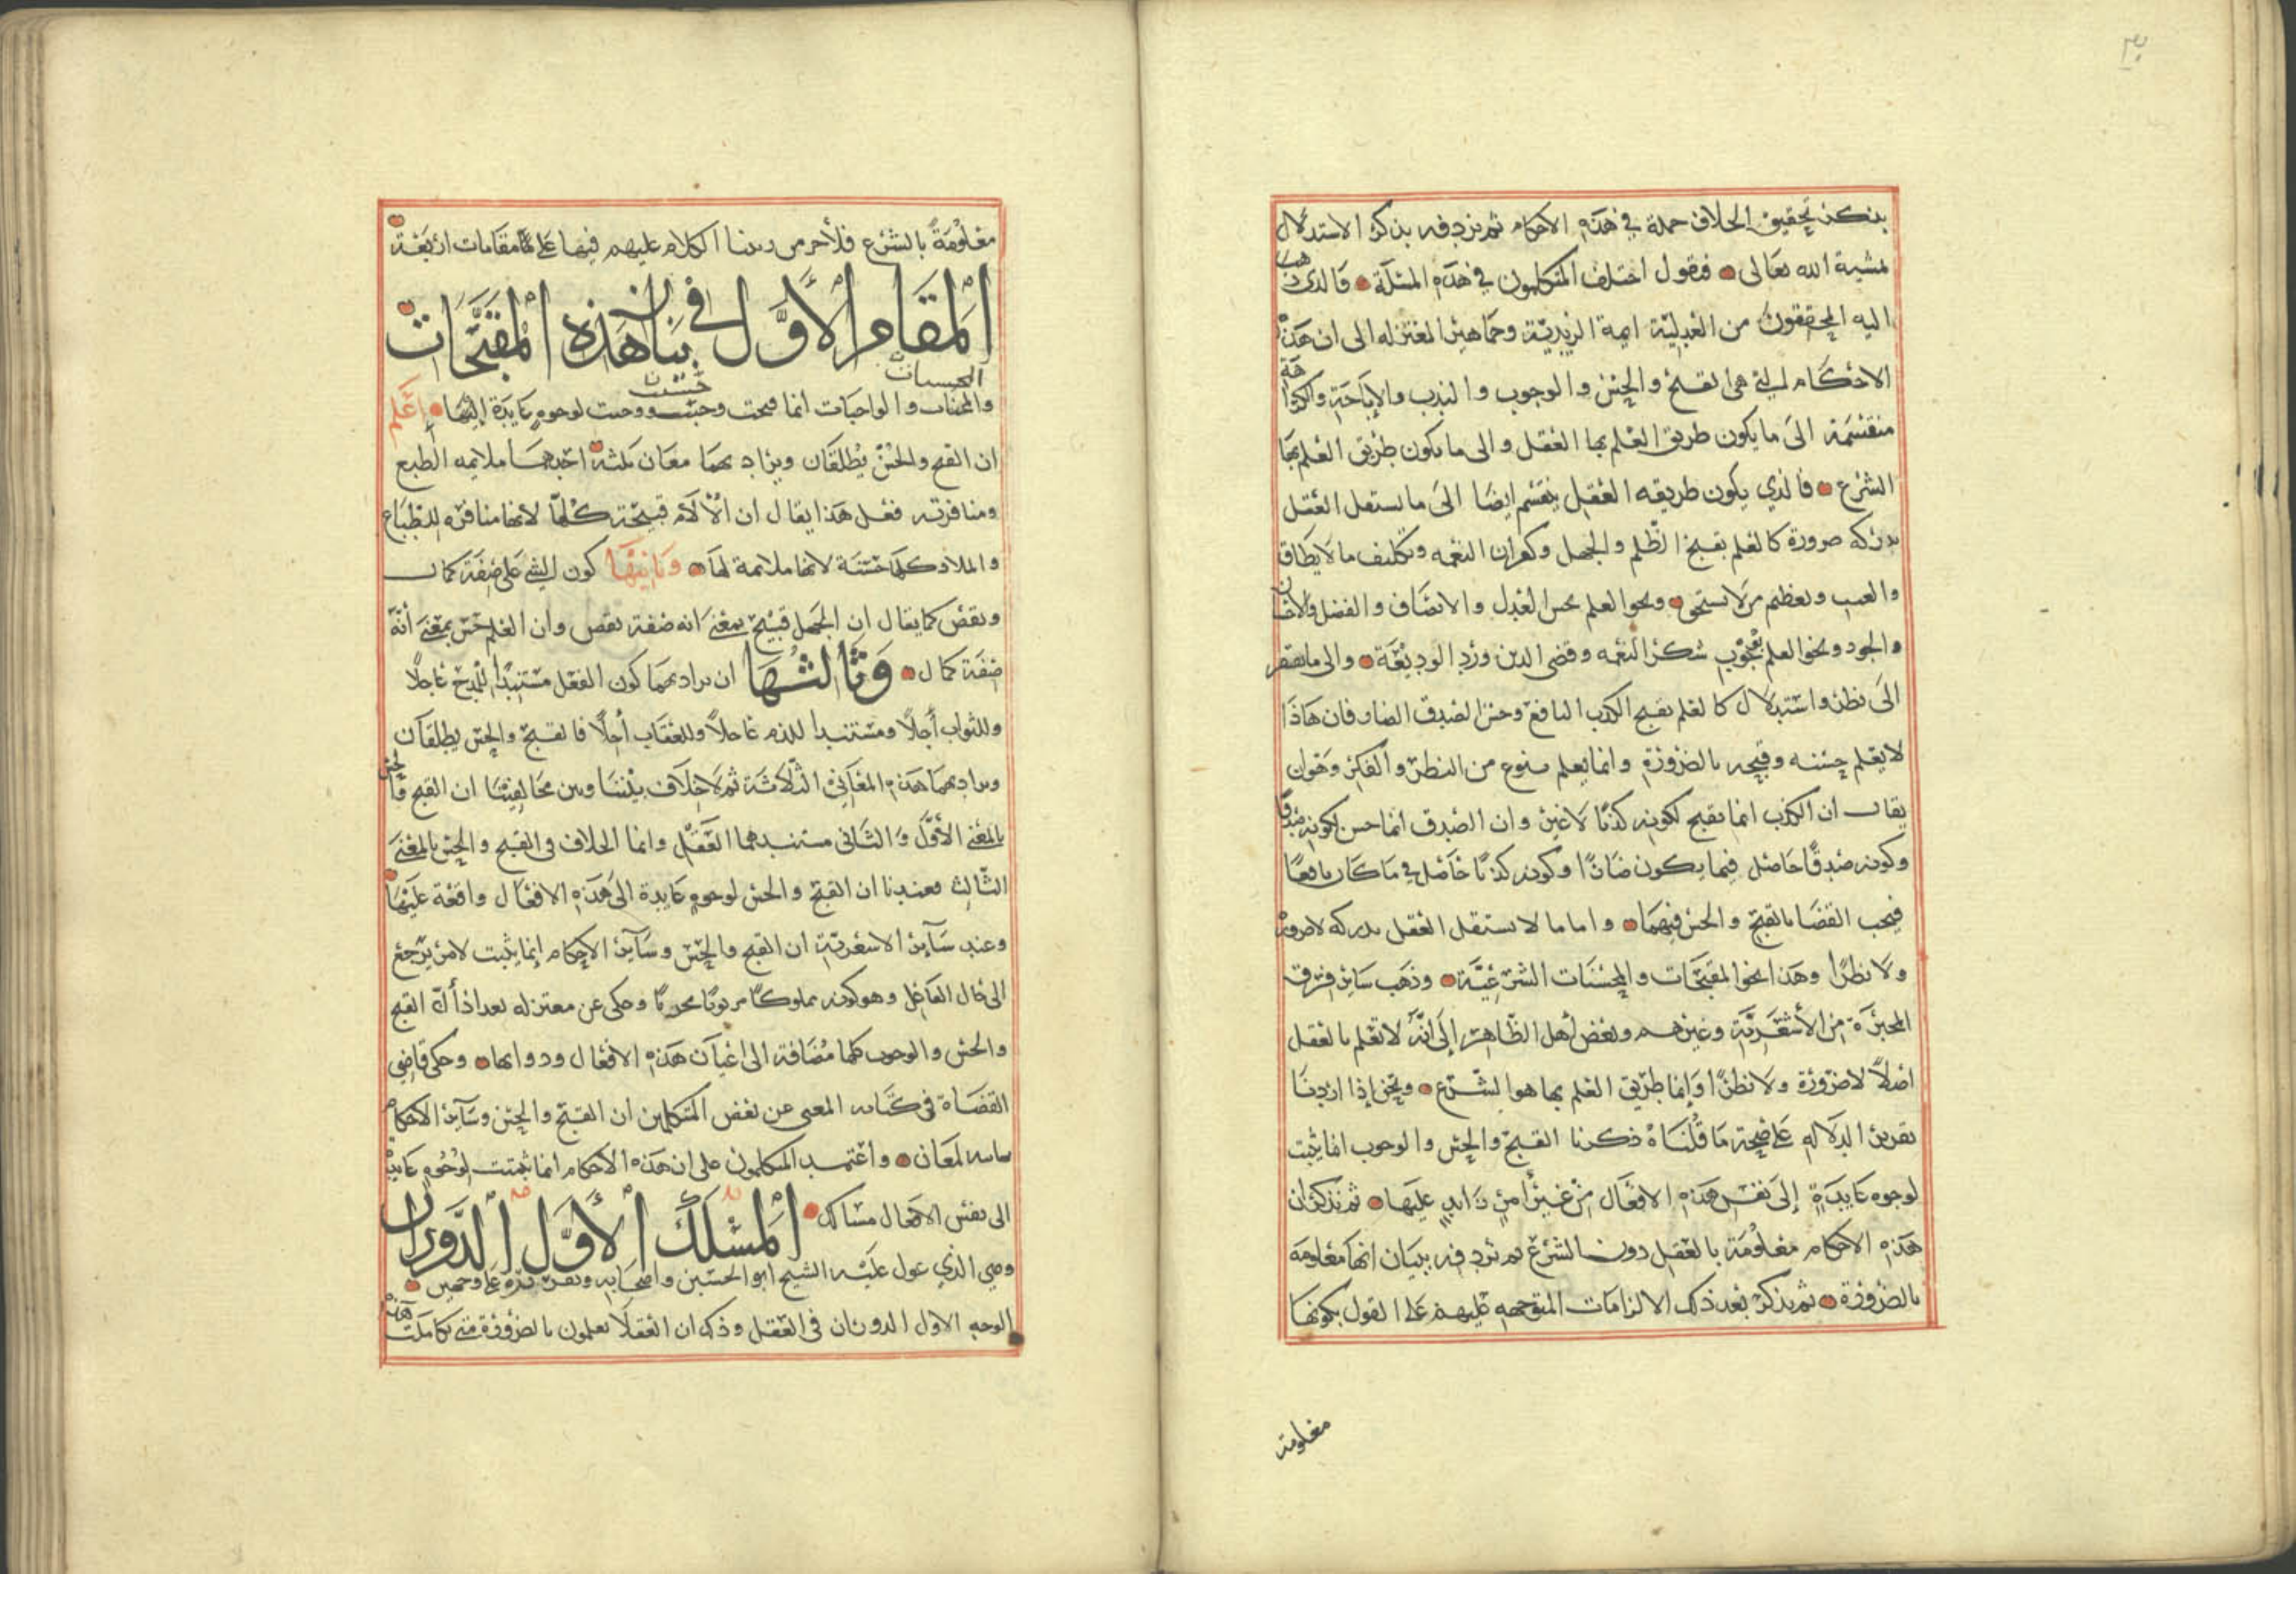 بذكر تحقيق الخلاف جملة في هذه الاحكام ثم نردفه بذكر الاستدلال
بمشية الله تعالى فنقول اختلف المتكلمون في هذه المسئلة فالذي ذهب
اليه المحققون من العدلية ايمة الزيدية وجماهير المعتزله الى ان هذه
الاحكام التي هي القبح والحسن والوجوب والندب والإباحة والكراهة
منقسمة الى ما يكون طريق العلم بها العقل والى ما يكون طريق العلم بها
الشرع فالذي يكون طريقه العقل ينقسم ايضا الى ما يستقل العقل
بدركه ضرورة كالعلم بقبح الظلم والجهل وكفران النعمه وتكليف ما لا يطاق
والعبث وتعظيم من لا يستحق ونحو العلم بحسن العدل والانصاف والفضل والاحسان
والجود ونحو العلم بوجوب شكر النعمه وقضى الدين ورد الوديعة والى ما يفتقر
الى نظر واستدلال كالعلم بقبح الكذب النافع وحسن الصدق الضار فان هاذا
لا يعلم حسنه وقبحه بالضرورة وانما يعلم بنوع من النظر والفكر وهو ان
يقال ان الكذب انما يقبح لكونه كذبًا لا غير وان الصدق انما حسن لكونه صدقًا
وكونه صدقًا حاصل فيما يكون ضارًا وكونه كذبًا حاصل في ما كان نافعًا
فيجب القضا بالقبح والحسن فيهما واما ما لا يستقل العقل بدركه لا ضرورة
ولا نظرًا وهذا نحو المقبحات والمحسنات الشرعية وذهب ساير فرق
المجبرة من الأشعرية وغيرهم وبعض أهل الظاهر إلى انه لا تعلم بالعقل
اصلاً لا ضرورة ولا نظرًا وإنما طريق العلم بها هو الشرع ونحن إذا اردنا
تقرير الدلاله على صحة ما قلناه ذكرنا القبح والحسن والوجوب انما يثبت
لوجوه عايدة إلى نفس هذه الافعال من غير أمر زايد عليها ثم نذكر ان
هذه الاحكام معلومة بالعقل دون الشرع ثم نردفه ببيان انها معلومه
بالضرورة ثم نذكر بعد ذلك الالزامات المتوجهه عليهم على القول بكونها
معلومة
معلومةً بالشرع فلأجرم رتبنا الكلام عليهم فيها على مقامات اربعة
المقام الأول في بيان ان هذه المقبحات
والمحسنات والواجبات انما قبحت وحسنت ووجبت لوجوه عايدة إليها إعلم
الحسنات
حسنت
ان القبح والحسن يطلقان ويراد بهما معان ثلثه احدها ملايمه الطبع
ومنافرته فعلى هذا يقال ان الألآم قبيحة كلها لانها منافره للطباع
والملاذ كلها حسنة لانها ملايمة لها وثانيها كون الشي على صفة كمال
ونقص كما يقال ان الجهل قبيح بمعنى انه صفة نقص وان العلم حسن بمعنى أنه
صفة كمال وثالثها ان يراد بهما كون الفعل مستندًا للمدح عاجلًا
وللثواب أجلًا ومستندا للذم عاجلاً وللعقاب أجلاً فالقبح والحسن يطلقان
ويراد بهما هذه المعاني الثلاثة ثم لا خلاف بيننا وبين مخالفينا ان القبح والحسن
بالمعنى الأول والثاني مستندهما العقل وانما الخلاف في القبح والحسن بالمعنى
الثالث فعندنا ان القبح والحسن لوجوه عايدة الى هذه الافعال واقعة عليها
وعند ساير الاشعرية ان القبح والحسن وساير الاحكام إنما يثبت لامر يرجع
الى حال الفاعل وهو كونه مملوكًا مربوبًا محدثًا وحكى عن معتزله بغداذ أن القبح
والحسن والوجوب كلها مضافة الى اعيان هذه الافعال وذواتها وحكى قاضي
القضاة في كتابه المغنى عن بعض المتكلمين ان القبح والحسن وساير الاحكام
ثابته لمعان واعتمد المتكلمون على ان هذه الاحكام انما ثبتت لوجوه عايدة
الى نفس الافعال مسالك المسلك الأول الدوران
وهي الذي عول عليه الشيخ ابو الحسين واصحابه وتقريره على وجهين
الوجه الاول الدوران في العقل وذلك ان العقلا يعلمون بالضرورة متى تكاملت